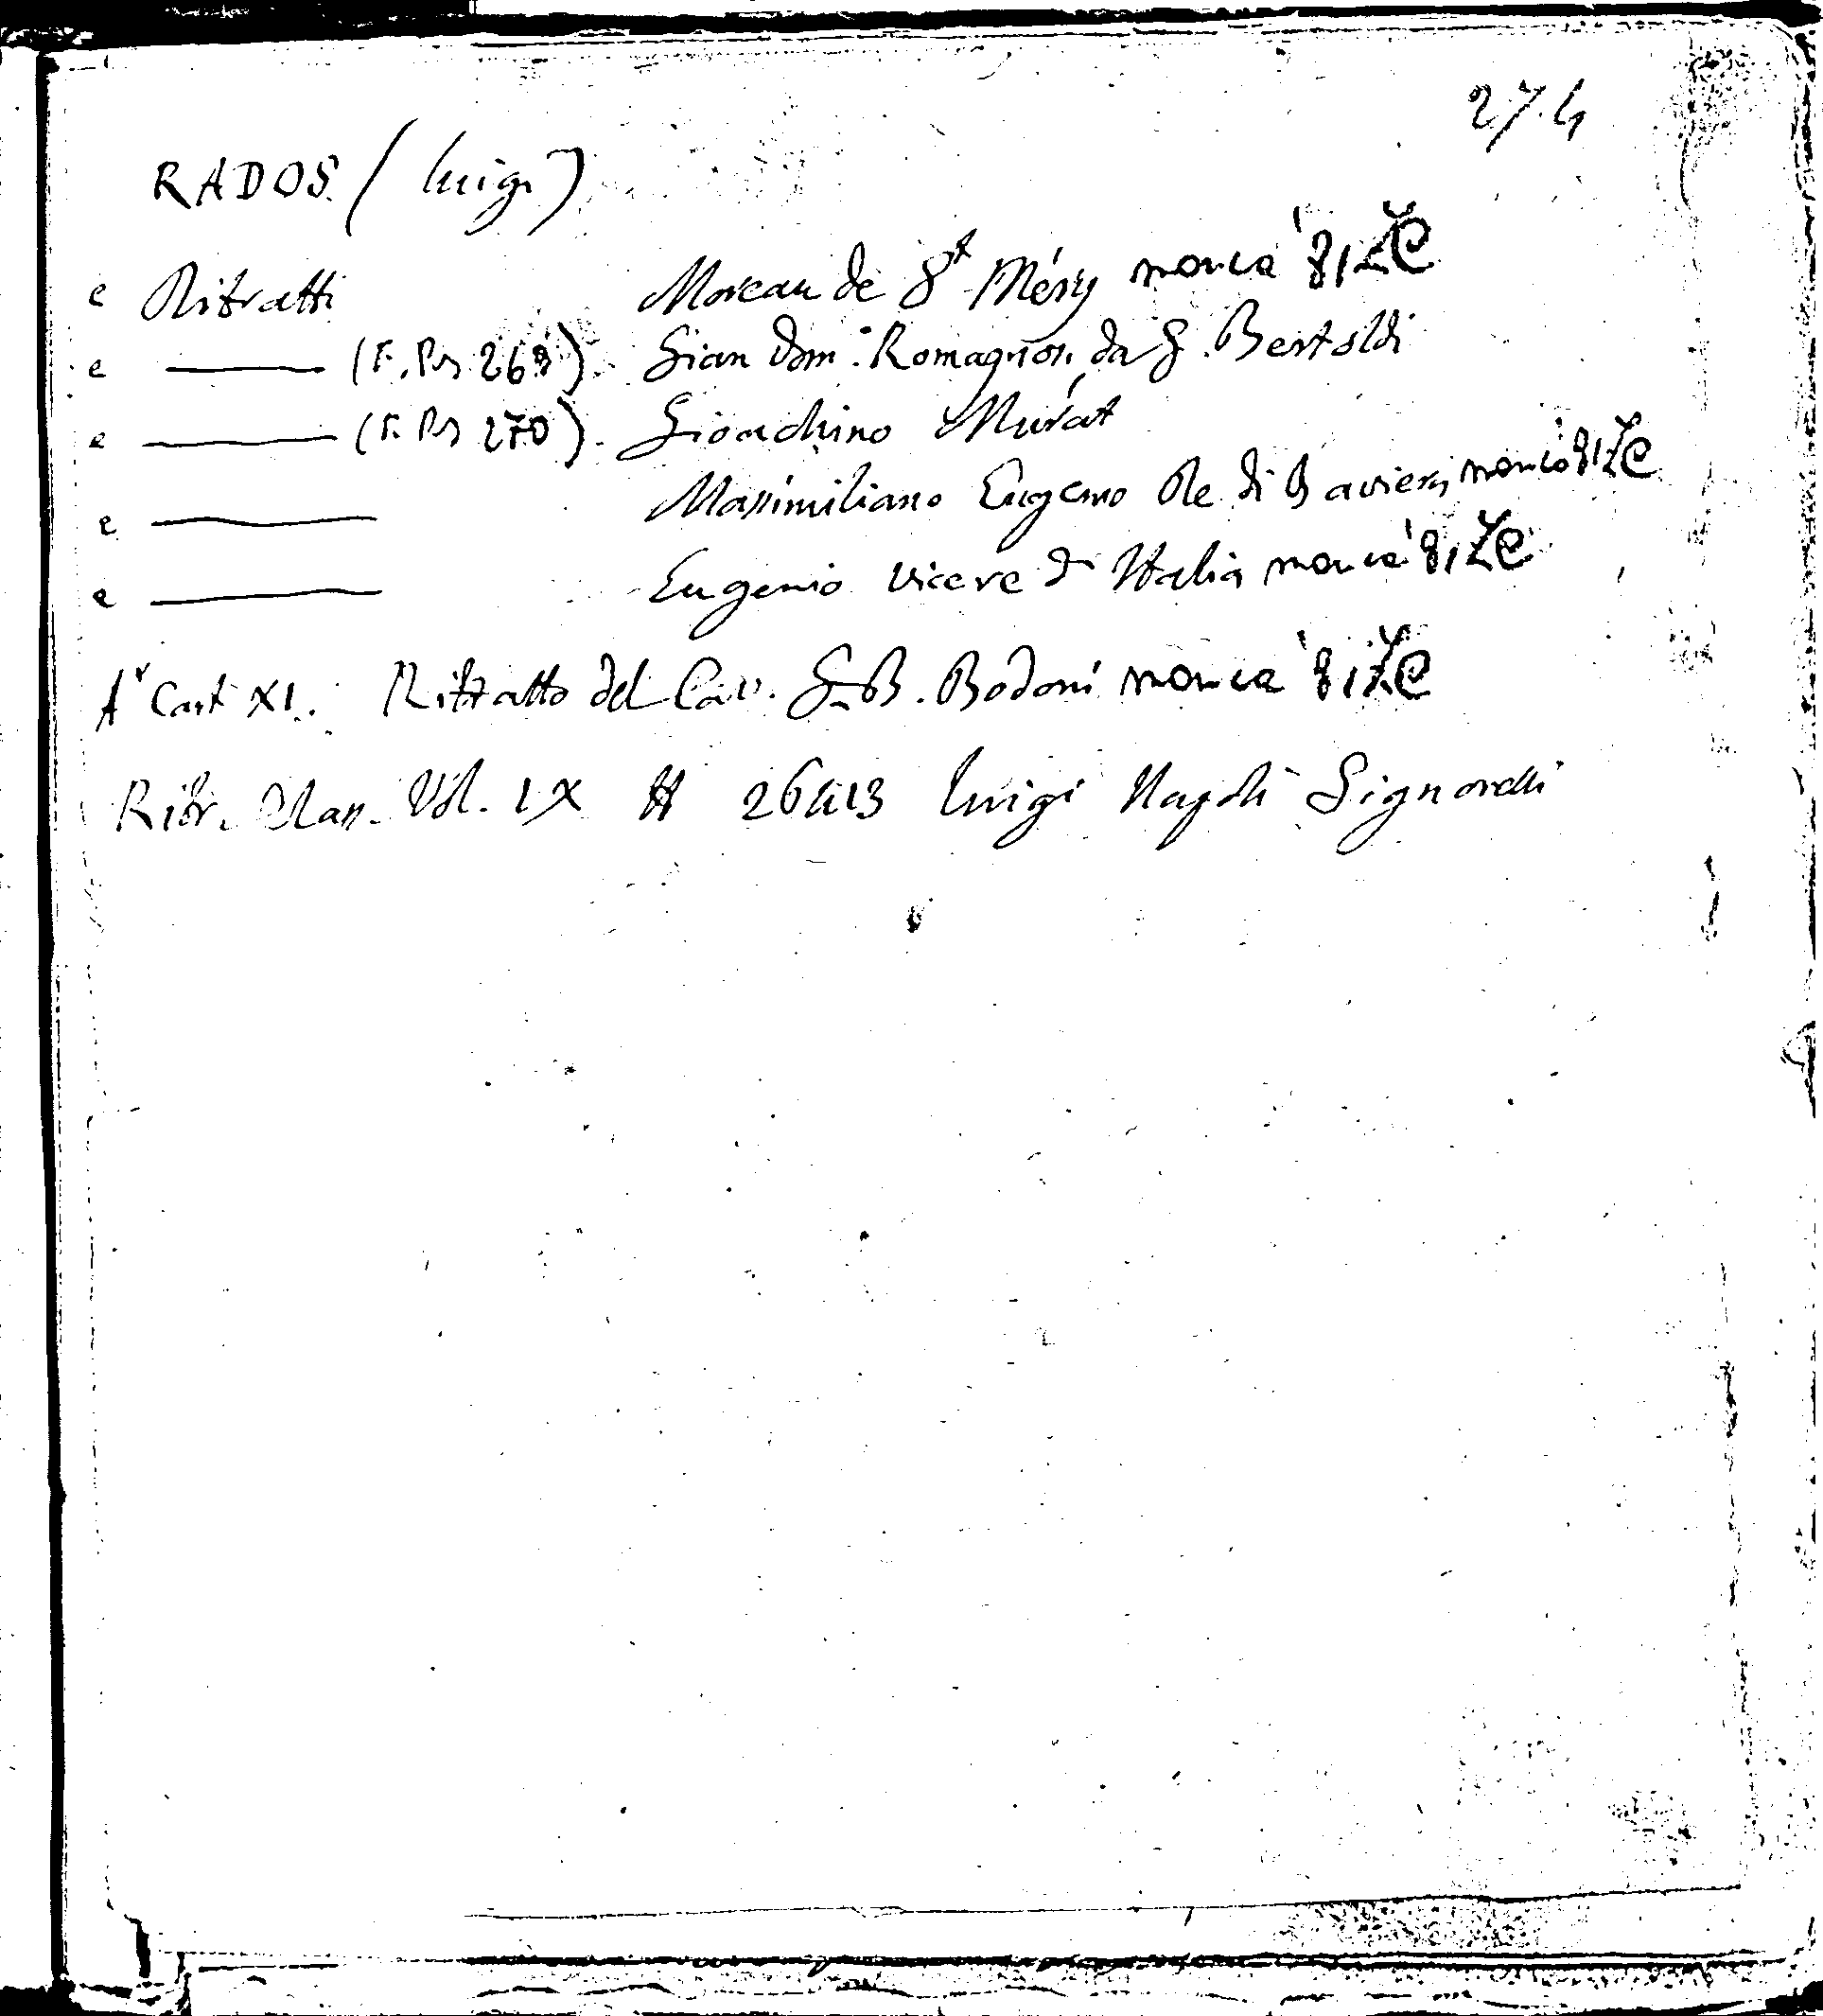 27.4
RADOS. (Luigi)
e Ritratti Moreau de St Méry manca '81
e —— (F. Ps 269). Gian Dom. Romagnosi da G. Bertoldi
e —— (F. Ps 270). Gioachino Murat
e —— Massimiliano Eugenio Re di Baviera manca '81
e —— Eugenio Vicere di Italia manca '81
Cart XI. Ritratto del Cav. G.B. Bodoni manca '81
Ritr. Vol. IX # 26413 Luigi Napoli Signorelli